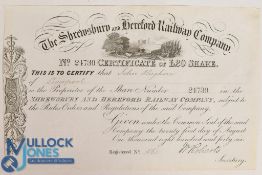 The Shrewsbury and Hereford Railway Company
No 24739 CERTIFICATE of £20 SHARE.
THIS IS TO CERTIFY that John Bingham
of Liverpool
is the Proprietor of the Share Number 24739 in the
SHREWSBURY AND HEREFORD RAILWAY COMPANY, subject to
the Rules Orders and Regulations of the said Company.
Given under the Common Seal of the said
Company the twenty first day of August
One thousand eight hundred and forty six
Registered No
Secretary.
MULLOCK
JONES